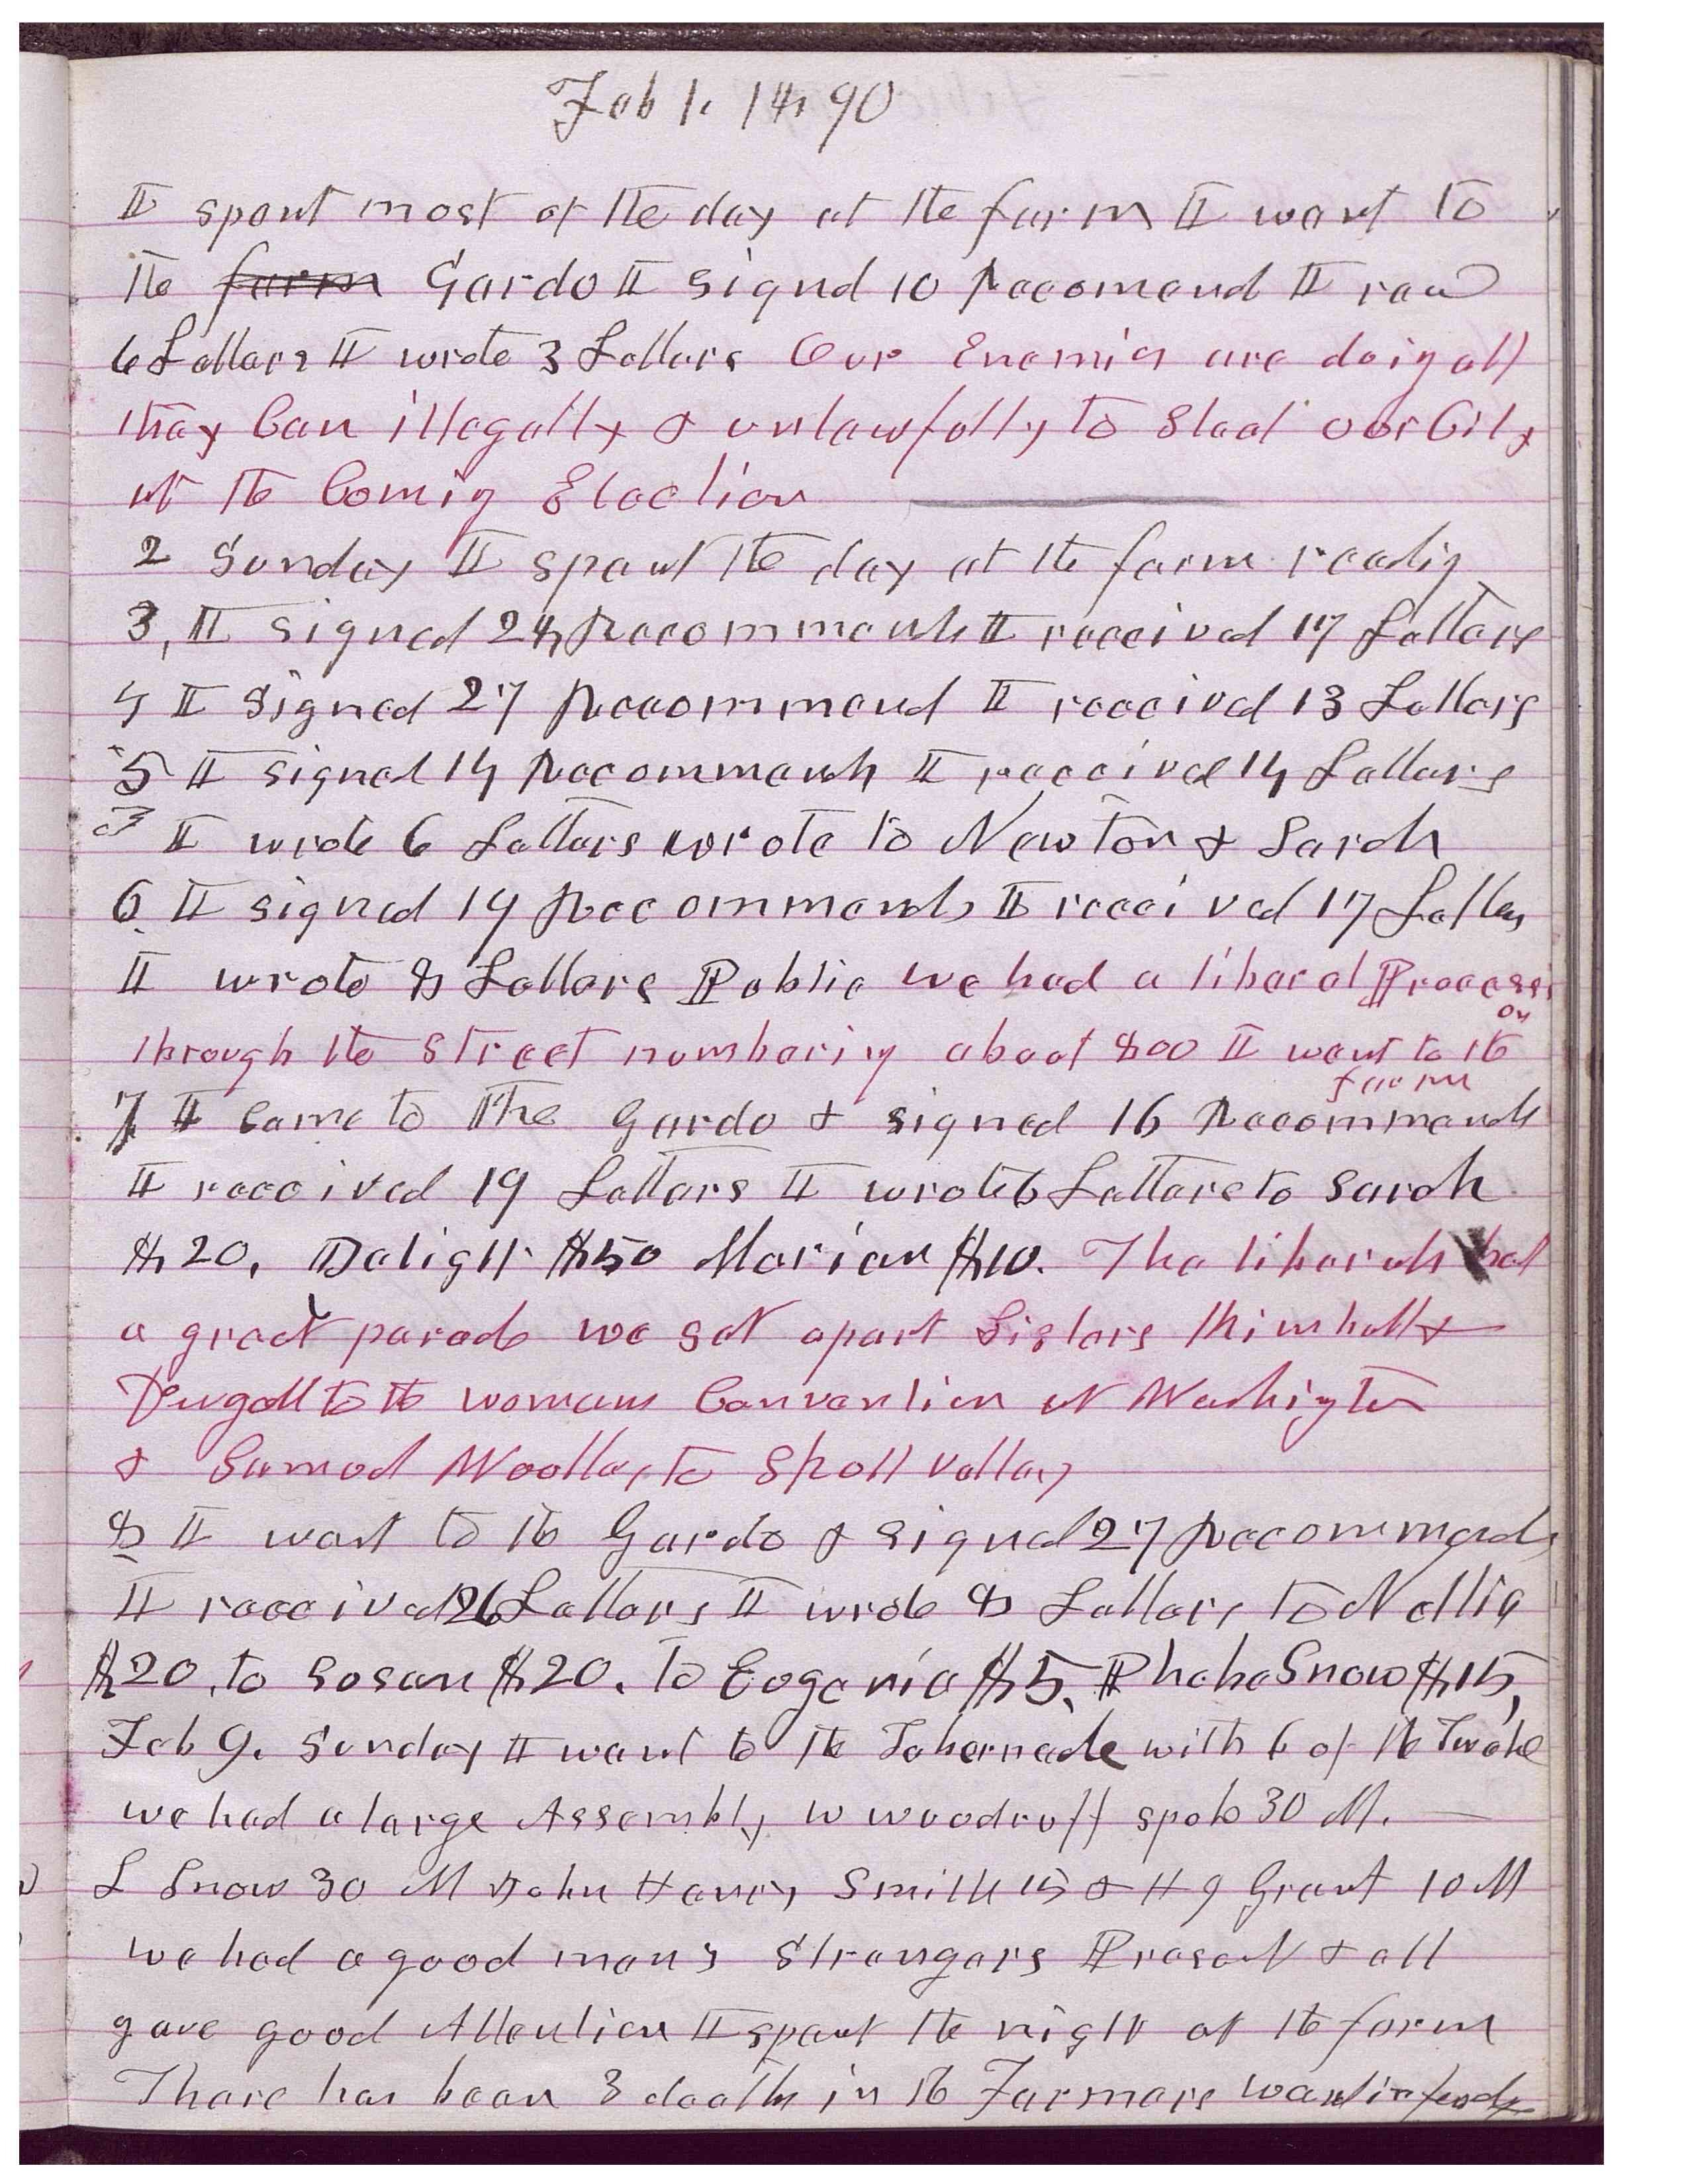 Feb 1. 1890
I spent most of the day at the farm I went to
the farm Gardo I signd 10 Recomend I recd
6 Letters I wrote 3 Letters Our Enemies are doig all
they Can illegally & unlawfully to Steal our City
at the Comig Election
2 Sunday I spent the day at the farm readig
3, I signed 24 Recommends I received 17 Letters
4 I Signed 27 Recommend I received 13 Letters
5 I signed 14 Recommends I received 14 Letters
I wrote 6 Letters wrote to Newton & Sarah
6 I signed 19 Recommends I received 17 Letters
I wrote 8 Letters Public we had a liberal Processi
on
through the Street numberig about 800 I went to the
farm
7 I Came to The Gardo & signed 16 Recommends
I received 19 Letters I wrote 6 Letters to Sarah
$20, Delight $50 Marian $10. The liberals had
a great parade we set apart Sisters Kimball &
Dugall to the womans Convention at Washigton
& Samuel Woolley to Skull valley
8 I went to the Gardo & signed 27 Recommends
I received 26 Letters I wrote 8 Letters to Nellie
$20, to Susan $20. to Eugenia $5, Phebe Snow $15,
Feb 9. Sunday I went to the Tabernacle with 6 of the Twelve
we had a large Assembly W Woodruff spoke 30 M.
L Snow 30 M John Henry Smith 15 & H J Grant 10 M
we had a good many Strangers Present & all
gave good Attention I spent the night at the farm
There has been 3 deaths in the Farmers ward